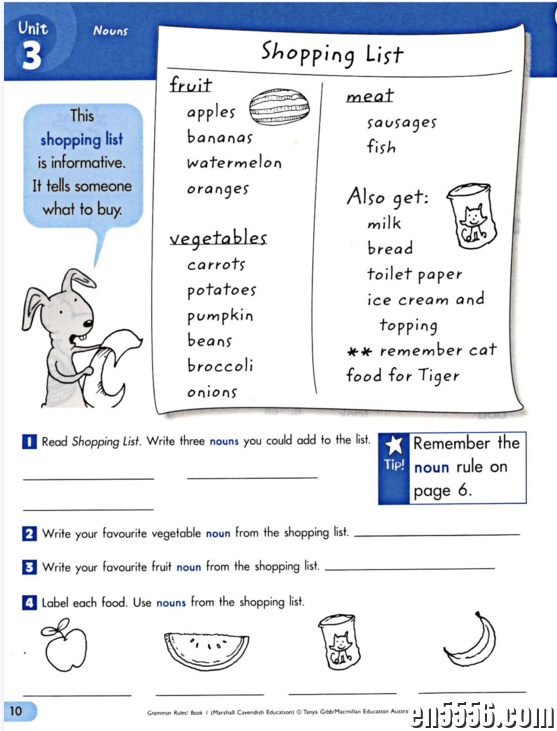 Unit
3
Nouns
This
shopping list
is informative.
It tells someone
what to buy.
Shopping List
fruit
apples
bananas
watermelon
oranges
vegetables
carrots
potatoes
pumpkin
beans
broccoli
onions
meat
sausages
fish
Also get:
milk
bread
toilet paper
ice cream and
topping
** remember cat
food for Tiger
1 Read Shopping List. Write three nouns you could add to the list.
Tip!
Remember the
noun rule on
page 6.
2 Write your favourite vegetable noun from the shopping list.
3 Write your favourite fruit noun from the shopping list.
4 Label each food. Use nouns from the shopping list.
10
Grammar Rules! Book 1 (Marshall Cavendish Education) © Tanya Gibb/Macmillan Education
en5556.com